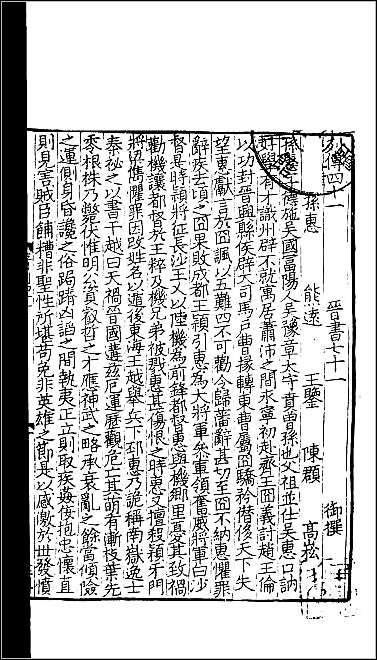 列傳四十一 晉書七十一 御撰
孫惠 熊遠 王鑒 陳頵 高崧
孫惠字德施吳國富陽人吳豫章太守賁曾孫也父祖並仕吳惠口訥
好學有才識州辟不就寓居蕭沛之間永寧初赴齊王冏義討趙王倫
以功封晉興縣侯辟大司馬戶曹掾轉東曹屬冏驕矜僭侈天下失
望惠獻言於冏諷以五難四不可勸令歸藩辭甚切至冏不納惠懼罪
辭疾去頃之冏果敗成都王穎引惠為大將軍參軍領奮威將軍白沙
督是時穎將征長沙王乂以陸機為前鋒都督惠與機鄉里憂其致禍
勸機讓都督於王粹及機兄弟被戮惠甚傷恨之時惠又擅殺穎牙門
將梁儁懼罪因改姓名以遁後東海王越舉兵下邳惠乃詭稱南嶽逸士
秦祕之以書干越曰天禍晉國遘茲厄運歷觀危亡其萌有漸枝葉先
零根株乃斃伏惟明公資叡哲之才應神武之略承衰亂之餘當傾險
之運側身昏讒之俗跼蹐凶諂之間執夷正立則取疾姦佞抱忠懷直
則見害賊臣餔糟非聖性所堪苟免非英雄之節是以感激於世發憤